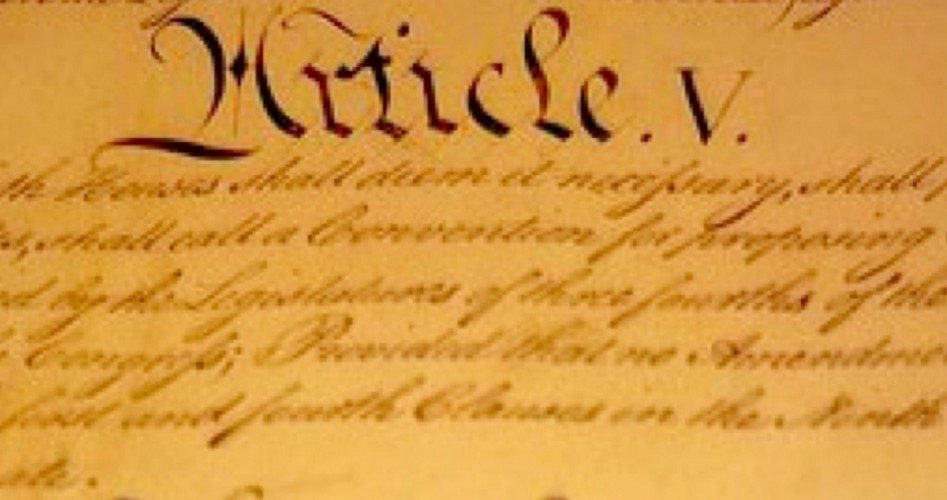 Article. V.
th Houses shall deem it necessary, shall
shall call a Convention for proposing
by the Legislatures of three fourths of the
Congress; Provided that no Amendme
first and fourth Clauses in the Ninth